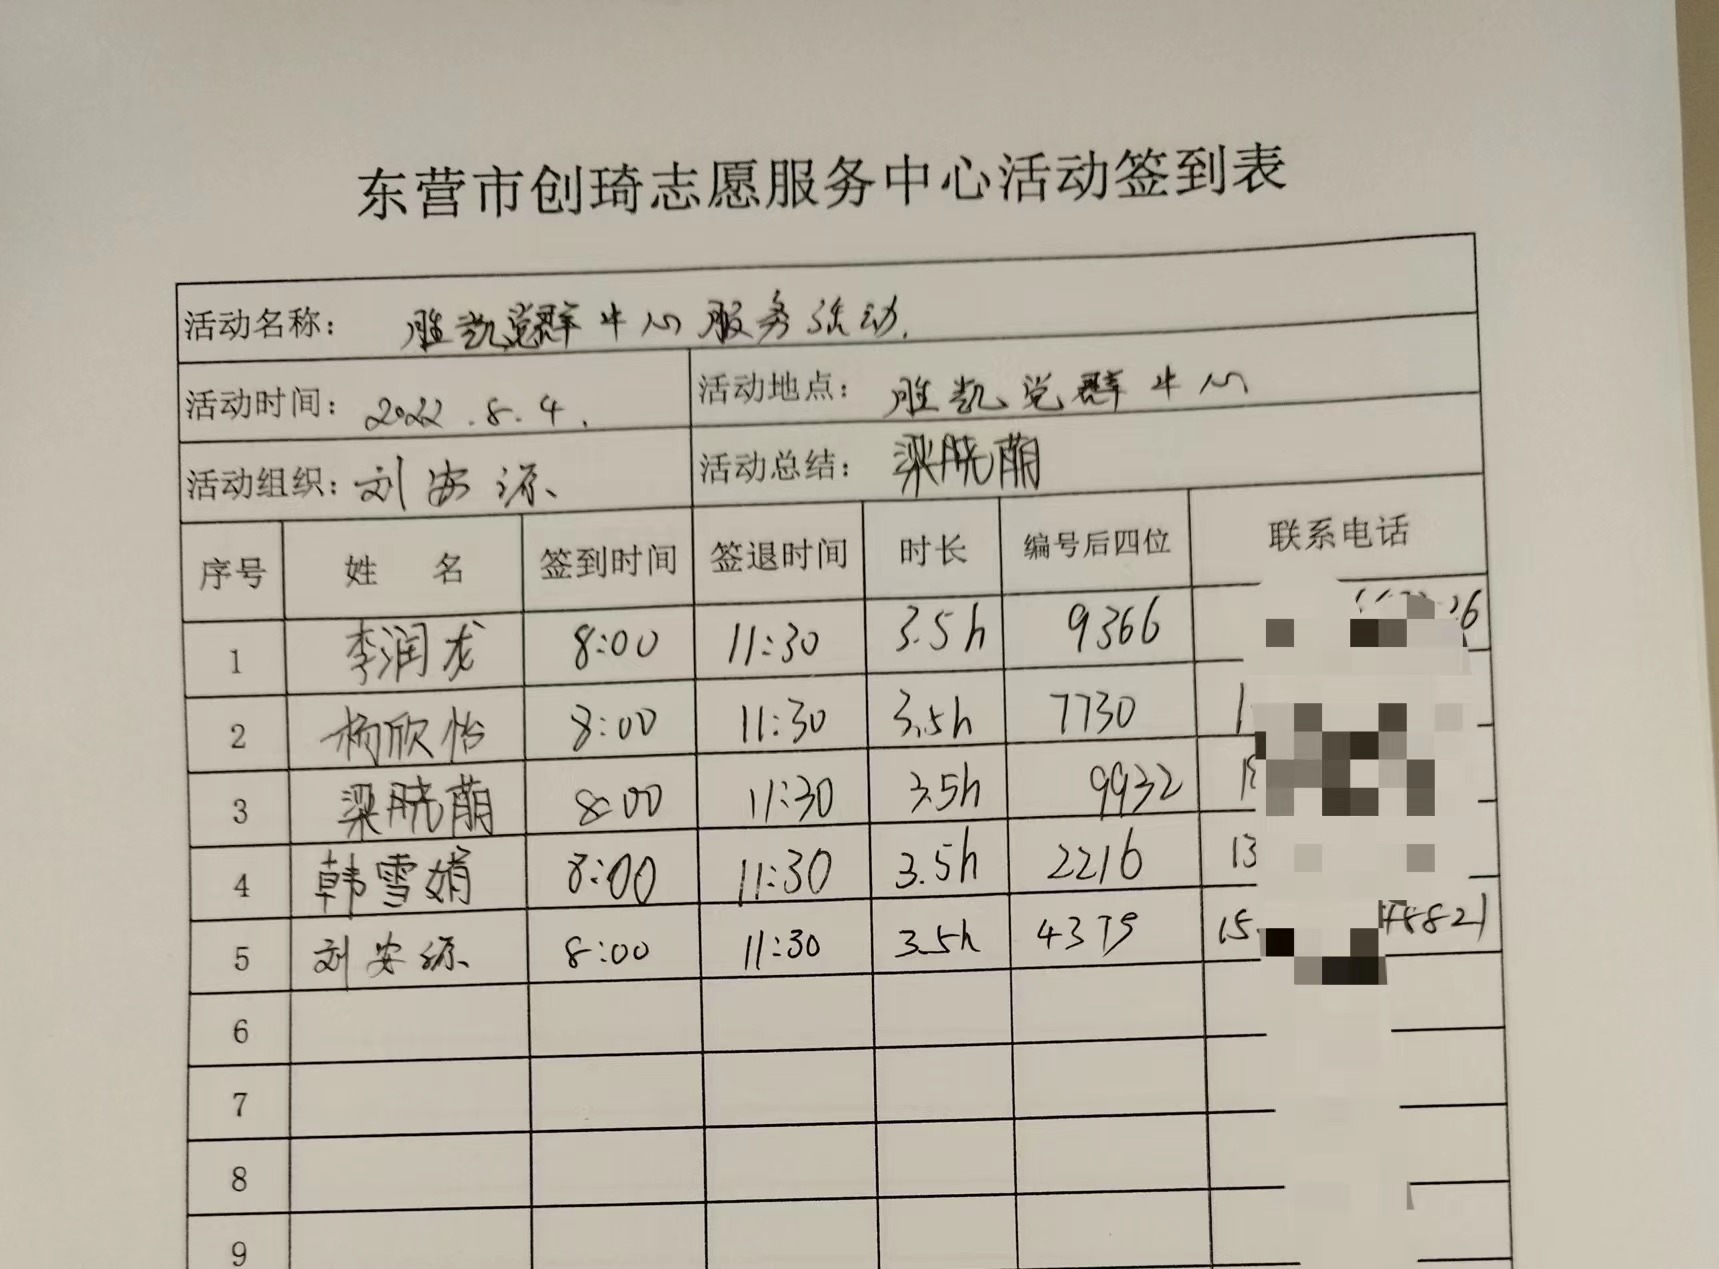 东营市创琦志愿服务中心活动签到表
活动名称： 胜凯党群中心服务活动.
活动时间： 2022.8.4. 活动地点： 胜凯党群中心
活动组织： 刘安源 活动总结： 梁晓萌
序号 姓 名 签到时间 签退时间 时长 编号后四位 联系电话
1 李润龙 8:00 11:30 3.5h 9366
2 杨欣怡 8:00 11:30 3.5h 7730
3 梁晓萌 8:00 11:30 3.5h 9932
4 韩雪娟 8:00 11:30 3.5h 2216 13
5 刘安源 8:00 11:30 3.5h 4379 15 48821
6
7
8
9